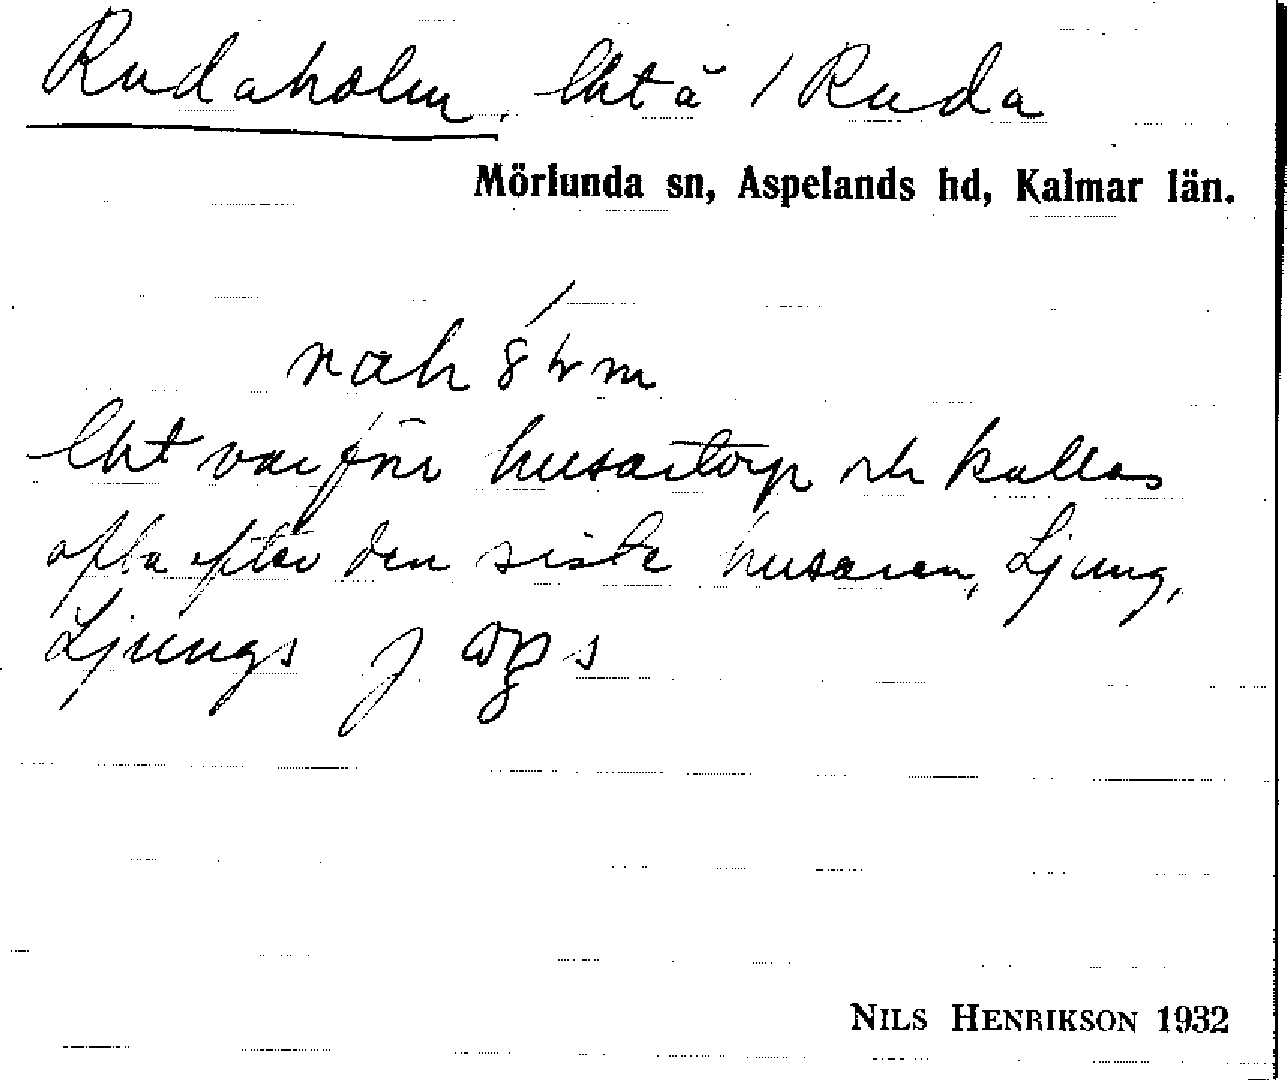 Rudaholm. lht å / Ruda
Mörlunda sn, Aspelands hd, Kalmar län.
lht var förr husartorp och kallas
ofta efter den siste husaren, Ljung,
Ljungs
NILS HENRIKSON 1932